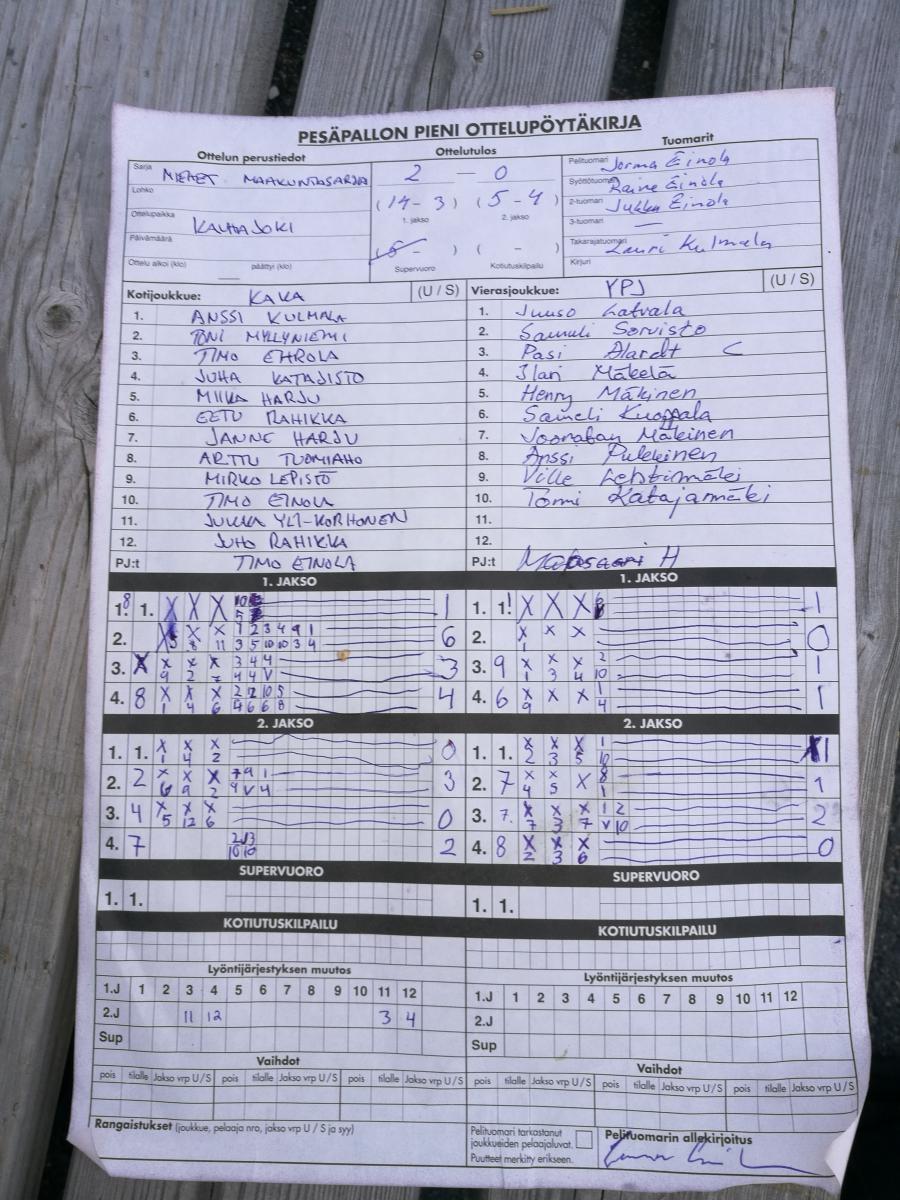 PESÄPALLON PIENI OTTELUPÖYTÄKIRJA
Ottelun perustiedot Ottelutulos Tuomarit
Sarja MIEHET MAAKUNTASARJA 2 — 0 Pelituomari Jorma Einola
Lohko Syöttötuomari Raine Einola
( 14 - 3 ) ( 5 - 4 ) 2-tuomari Jukka Einola
Ottelupaikka KAUHAJOKI 1. jakso 2. jakso 3-tuomari —
Päivämäärä ( - ) ( - ) Takarajatuomari Lauri Kulmala
Ottelu alkoi (klo) päättyi (klo) Supervuoro Kotiutuskilpailu Kirjuri
Kotijoukkue: KAKA (U / S) Vierasjoukkue: YPJ (U / S)
1. ANSSI KULMALA 1. Juuso Latvala
2. TONI MYLLYNIEMI 2. Samuli Sorvisto
3. TIMO EHROLA 3. Pasi Alardt C
4. JUHA KATAJISTO 4. Ilari Mäkelä
5. MIIKA HARJU 5. Henry Mäkinen
6. EETU RAHIKKA 6. Sameli Kuoppala
7. JANNE HARJU 7. Joonatan Mäkinen
8. ARTTU TUOMIAHO 8. Anssi Pukkinen
9. MIRKO LEPISTÖ 9. Ville Lehtimäki
10. TIMO EINOLA 10. Tommi Katajamäki
11. JUKKA YLI-KORHONEN 11.
12. JUHO RAHIKKA 12.
PJ:t TIMO EINOLA PJ:t H
1. JAKSO 1. JAKSO
1. 1. X X X 1 1. 1. X X X 1
2. X X 1 2 3 4 9 1 6 2. X X X 0
8 11 3 5 10 10 3 4 1
3. X X X 3 4 4 3 3. 9 X X X 2 1
9 2 7 4 4 V 1 3 4 10
4. 8 X X X 2 2 10 5 4 4. 6 X X X 1 1
1 4 6 4 6 6 8 9 4
2. JAKSO 2. JAKSO
1. 1. X X X 0 1. 1. X X X 1 1
1 4 2 2 3 5 10
2. 2 X X X 7 9 1 3 2. 7 X X X 8 1
6 9 2 9 V 4 4 5 1
3. 4 X X X 0 3. 7. X X X 1 2 2
5 12 6 7 3 7 V 10
4. 7 2 4. 8 X X X 0
10 10 2 3 6
SUPERVUORO SUPERVUORO
1. 1. 1. 1.
KOTIUTUSKILPAILU KOTIUTUSKILPAILU
Lyöntijärjestyksen muutos Lyöntijärjestyksen muutos
1.J 1 2 3 4 5 6 7 8 9 10 11 12 1.J 1 2 3 4 5 6 7 8 9 10 11 12
2.J 11 12 3 4 2.J
Sup Sup
Vaihdot Vaihdot
pois tilalle Jakso vrp U / S pois tilalle Jakso vrp U / S pois tilalle Jakso vrp U / S pois tilalle Jakso vrp U / S pois tilalle Jakso vrp U / S pois tilalle Jakso vrp U / S
Rangaistukset (joukkue, pelaaja nro, jakso vrp U / S ja syy) Pelituomari tarkastanut Pelituomarin allekirjoitus
joukkueiden pelaajaluvat.
Puutteet merkitty erikseen.